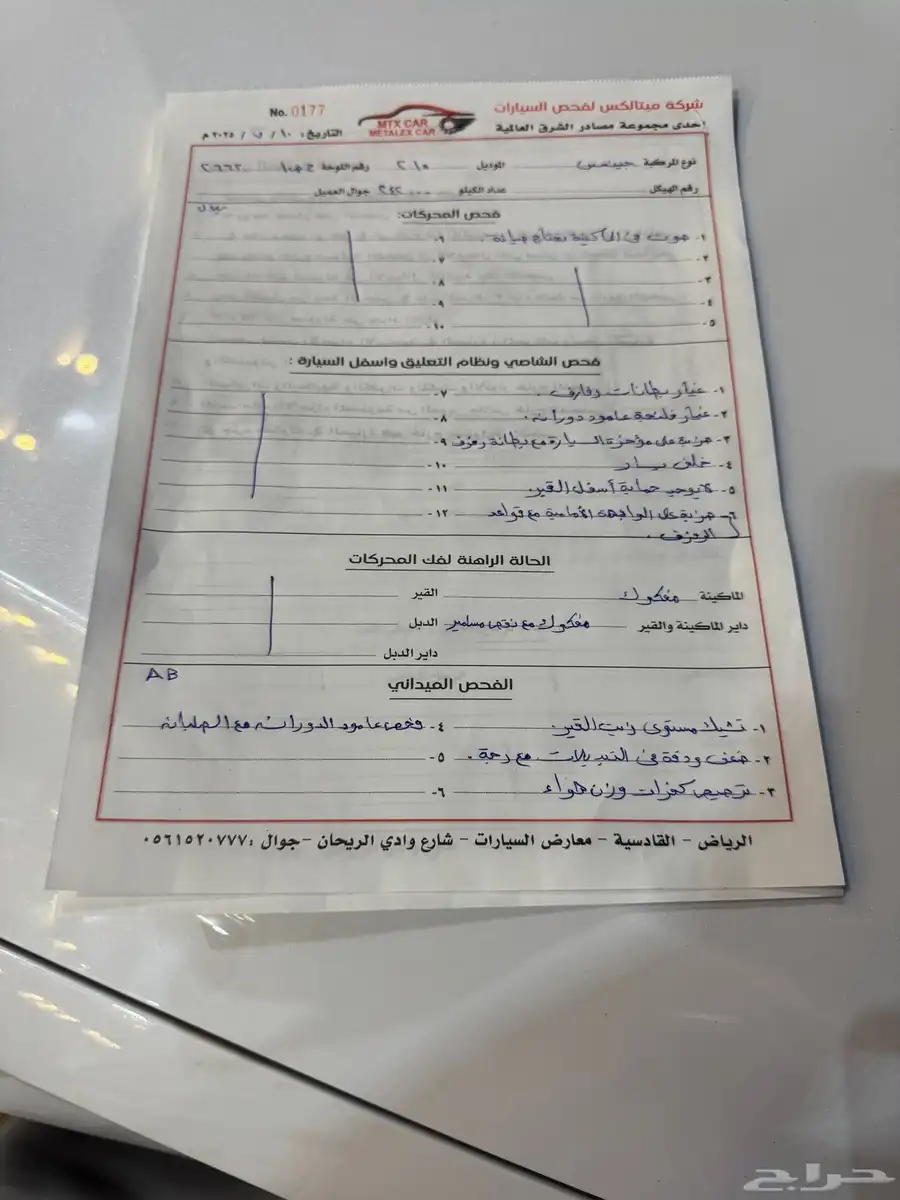 شركة ميتالكس لفحص السيارات
إحدى مجموعة مصادر الشرق العالمية
MTX CAR
METALEX CAR
No. 0177
التاريخ: ١٠ / / ٢٠٢٥ م
نوع المركبة جينسس الموديل ٢٠١٥ رقم اللوحة ٢٦٦٢
رقم الهيكل عداد الكيلو ٢٤٢٠٠٠ جوال العميل
فحص المحركات:
١- صوت في الماكينة يحتاج صيانة. ٦-
٢- ٧-
٣- ٨-
٤- ٩-
٥- ١٠-
فحص الشاصي ونظام التعليق واسفل السيارة :
١- غيار بطانات رفارف. ٧-
٢- غيار فلنجة عامود دورانه. ٨-
٣- ضربة على مؤخرة السيارة مع بطانة رفرف ٩-
٤- خلف يسار ١٠-
٥- لا يوجد حماية أسفل القير. ١١-
٦- ضربة على الواجهة الأمامية مع قواعد ١٢-
الرفرف.
الحالة الراهنة لفك المحركات
الماكينة مفكوك القير
داير الماكينة والقير مفكوك مع نقص مسامير الدبل
داير الدبل
AB
الفحص الميداني
١- تشيك مستوى زيت القير. ٤- فحص عامود الدورانه مع الصلبانه
٢- ضعف ودقة في التبديلات مع رجة. ٥-
٣- ترصيص كفرات وزن هواء ٦-
الرياض - القادسية - معارض السيارات - شارع وادي الريحان - جوال : ٠٥٦١٥٢٠٧٧٧
حراج